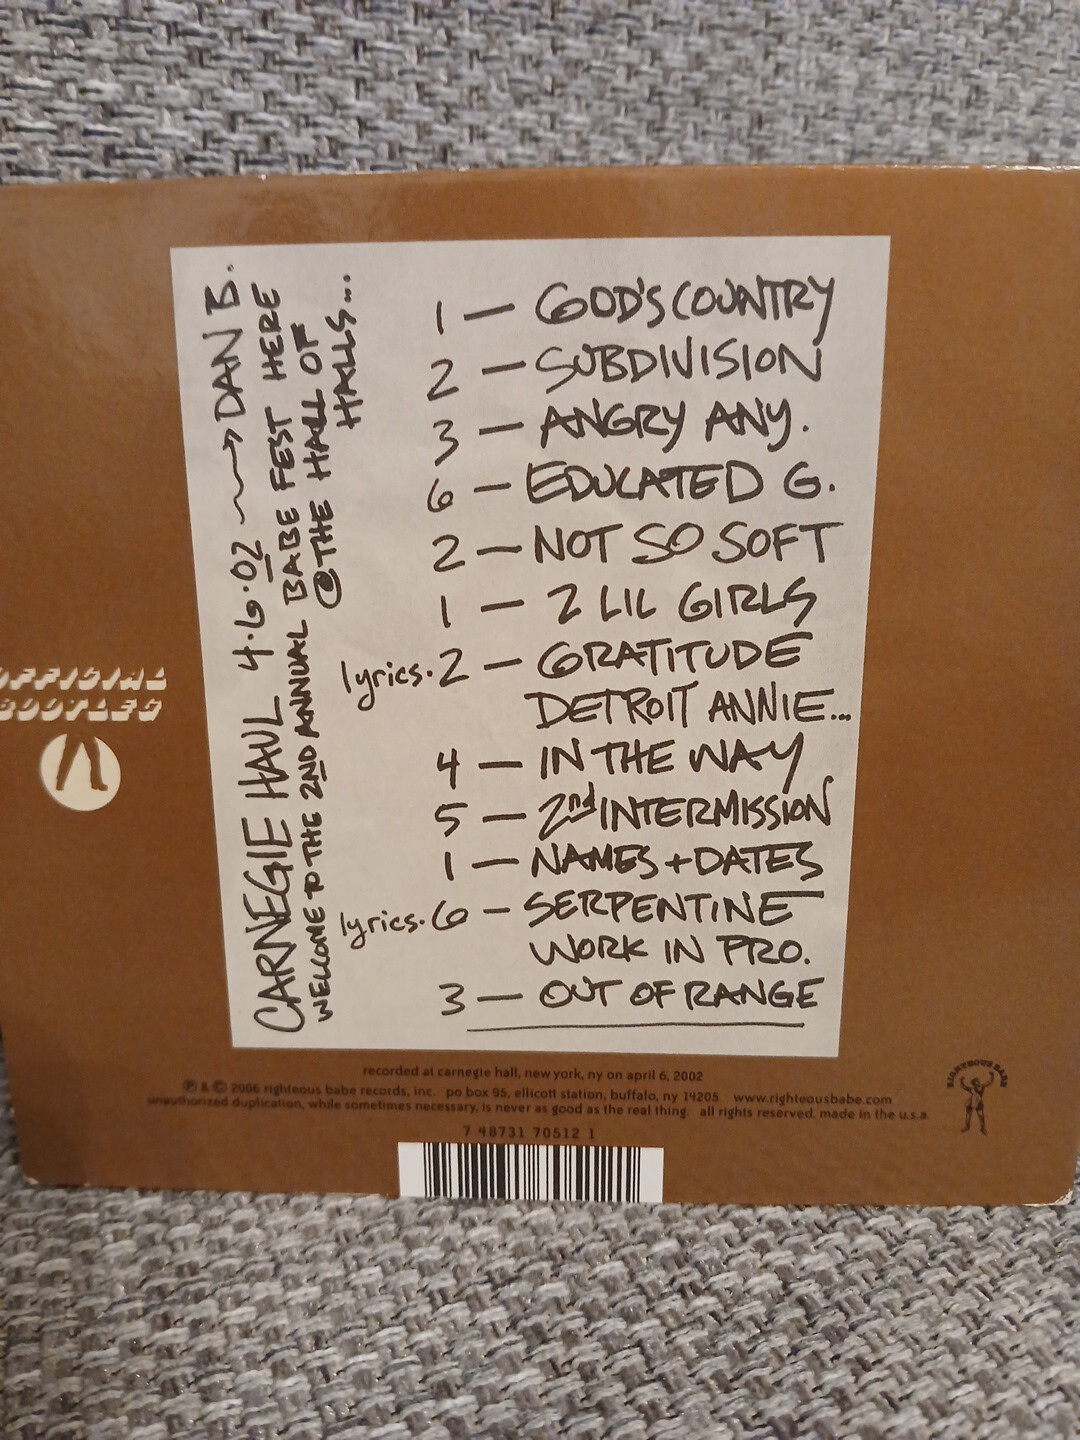 CARNEGIE HAUL 4.6.02 → DAN B.
WELCOME TO THE 2ND ANNUAL BABE FEST HERE
@ THE HALL OF
HALLS...
1 — GOD'S COUNTRY
2 — SUBDIVISION
3 — ANGRY ANY.
6 — EDUCATED G.
2 — NOT SO SOFT
1 — 2 LIL GIRLS
lyrics. 2 — GRATITUDE
DETROIT ANNIE...
4 — IN THE WAY
5 — 2nd INTERMISSION
1 — NAMES + DATES
lyrics. 6 — SERPENTINE
WORK IN PRO.
3 — OUT OF RANGE
OFFICIAL
BOOTLEG
recorded at carnegie hall, new york, ny on april 6, 2002
℗ & © 2006 righteous babe records, inc. po box 95, ellicott station, buffalo, ny 14205 www.righteousbabe.com
unauthorized duplication, while sometimes necessary, is never as good as the real thing. all rights reserved. made in the u.s.a.
RIGHTEOUS BABE
7 48731 70512 1